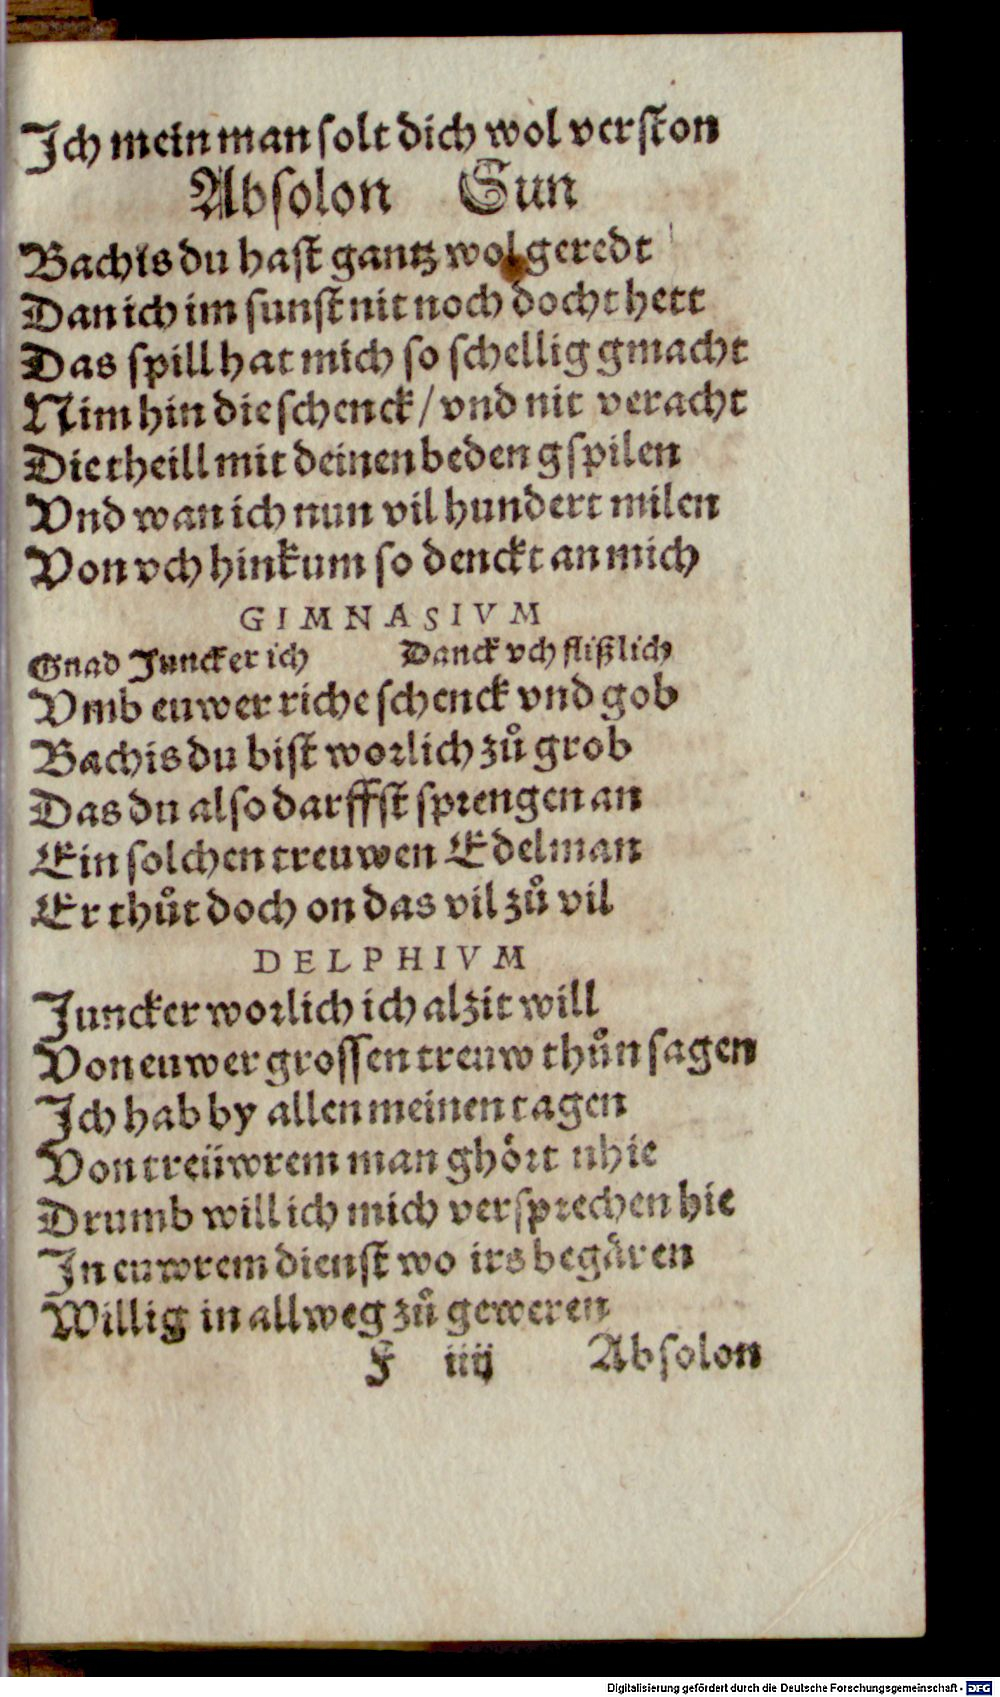 Ich mein man ſolt dich wol verſton
Abſolon Sun
Bachis du haſt gantz wol geredt
Dan ich im ſunſt nit noch docht hett
Das ſpill hat mich ſo ſchellig gmacht
Nim hin die ſchenck / vnd nit veracht
Die theill mit deinen beden gſpilen
Vnd wan ich nun vil hundert milen
Von vch hinkum ſo denckt an mich
GIMNASIVM
Gnad Juncker ich Danck vch fliſzlich
Vmb euwer riche ſchenck vnd gob
Bachis du biſt worlich zů grob
Das du alſo darffſt ſprengen an
Ein ſolchen treuwen Edelman
Er thůt doch on das vil zů vil
DELPHIVM
Juncker worlich ich alzit will
Von euwer groſſen treuw thůn ſagen
Ich hab by allen meinen tagen
Von treüwrem man ghört nhie
Drumb will ich mich verſprechen hie
In euwrem dienſt wo irs begären
Willig in allweg zů geweren
F iiij Abſolon
Digitalisierung gefördert durch die Deutsche Forschungsgemeinschaft - DFG